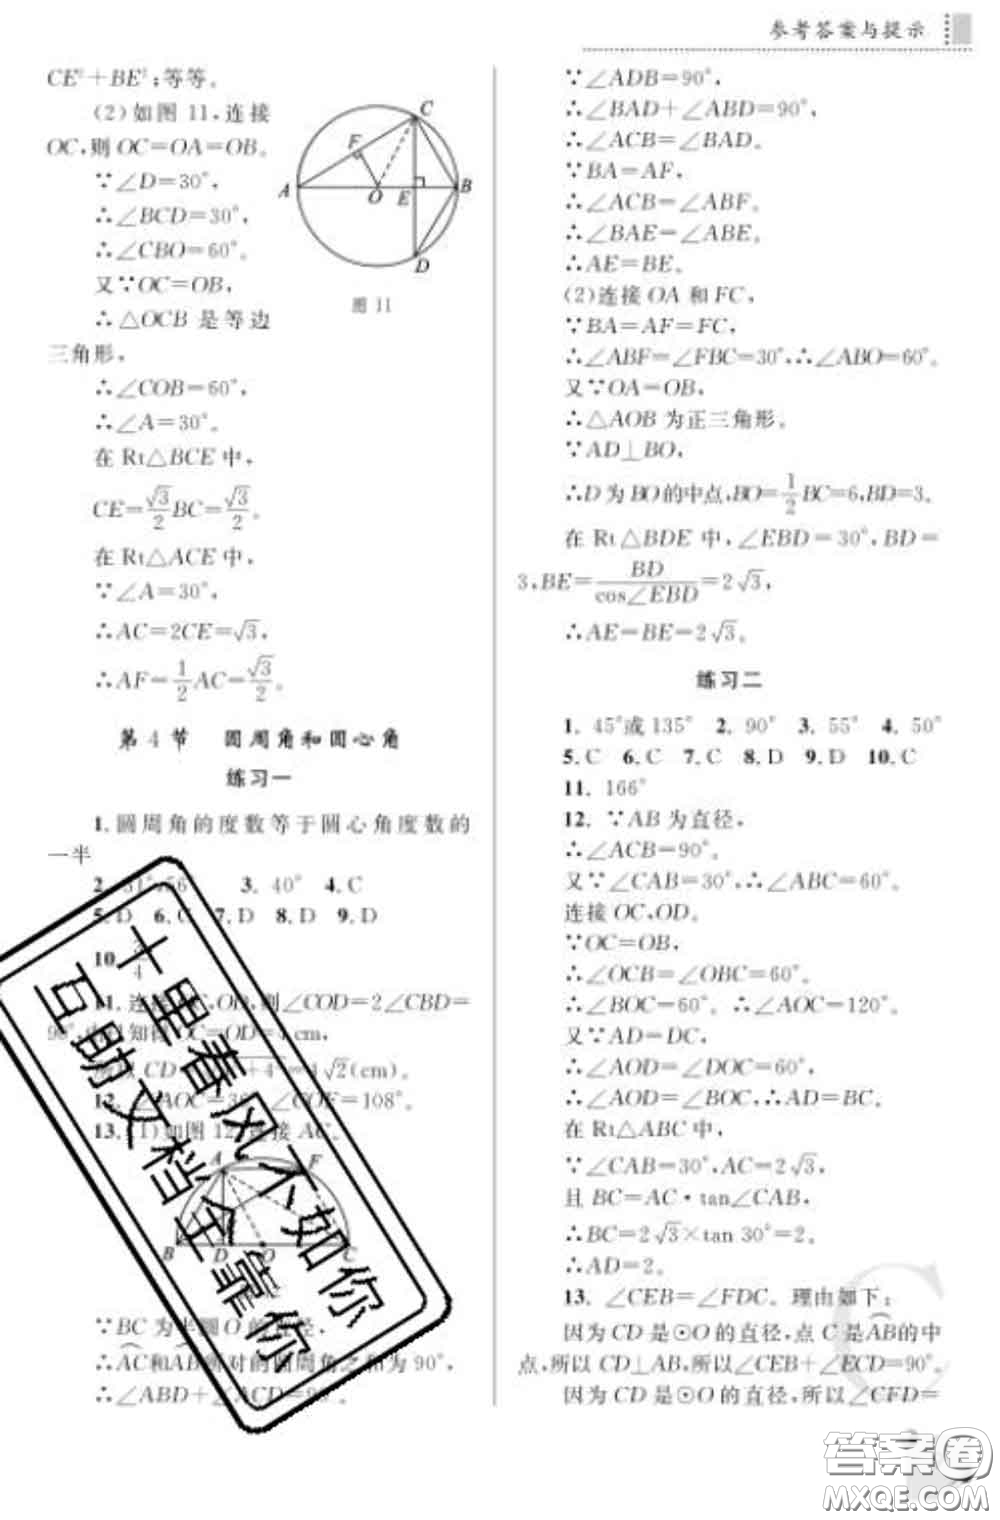 参考答案与提示
CE²+BE²;等等。
(2)如图 11,连接
OC,则 OC=OA=OB。
∵∠D=30°,
∴∠BCD=30°,
∴∠CBO=60°。
又∵OC=OB,
∴△OCB 是等边
三角形,
∴∠COB=60°,
∴∠A=30°。
在 Rt△BCE 中,
CE=√3/2 BC=√3/2。
在 Rt△ACE 中,
∵∠A=30°,
∴AC=2CE=√3,
∴AF=1/2 AC=√3/2。
C
F
A
O
E
B
D
图 11
第 4 节 圆周角和圆心角
练习一
1. 圆周角的度数等于圆心角度数的
一半
3. 40° 4. C
5. D 6. C 7. D 8. D 9. D
10.
11. 连接 则∠COD=2∠CBD=
OC=OD=4 cm,
CD= √2(cm)。
12. ∠AOC=36° ∠COF=108°
13. (1)如图 12,连接 AC。
A
F
B
D
O
C
∵BC 为半圆 O 的直径,
∴AC和AB所对的圆周角之和为 90°,
∴∠ABD+∠ACD=90°
∵∠ADB=90°,
∴∠BAD+∠ABD=90°,
∴∠ACB=∠BAD。
∵BA=AF,
∴∠ACB=∠ABF。
∴∠BAE=∠ABE。
∴AE=BE。
(2)连接 OA 和 FC,
∵BA=AF=FC,
∴∠ABF=∠FBC=30°,∴∠ABO=60°。
又∵OA=OB,
∴△AOB 为正三角形。
∵AD⊥BO,
∴D 为 BO 的中点,BO=1/2 BC=6,BD=3。
在 Rt△BDE 中,∠EBD=30°,BD=
3,BE=BD/cos∠EBD=2√3,
∴AE=BE=2√3。
练习二
1. 45°或 135° 2. 90° 3. 55° 4. 50°
5. C 6. C 7. C 8. D 9. D 10. C
11. 166°
12. ∵AB 为直径,
∴∠ACB=90°。
又∵∠CAB=30°,∴∠ABC=60°。
连接 OC,OD。
∵OC=OB,
∴∠OCB=∠OBC=60°。
∴∠BOC=60°。∴∠AOC=120°。
又∵AD=DC,
∴∠AOD=∠DOC=60°。
∴∠AOD=∠BOC,∴AD=BC。
在 Rt△ABC 中,
∵∠CAB=30°,AC=2√3,
且 BC=AC·tan∠CAB,
∴BC=2√3×tan 30°=2。
∴AD=2。
13. ∠CEB=∠FDC。理由如下:
因为 CD 是⊙O 的直径,点 C 是AB的中
点,所以 CD⊥AB,所以∠CEB+∠ECD=90°。
因为 CD 是⊙O 的直径,所以∠CFD=
十里春风不如你
互助文档全靠你
答案圈
MXQE.COM